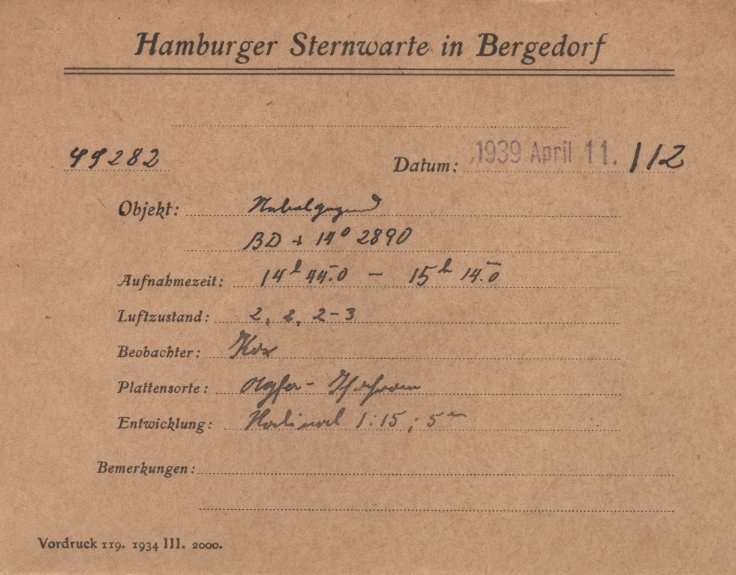 Hamburger Sternwarte in Bergedorf
49282 Datum: 1939 April 11. /12
Objekt: Nebelgegend
BD + 14° 2890
Aufnahmezeit: 14h 44.0 – 15h 14.0
Luftzustand: 2, 2, 2-3
Beobachter:
Plattensorte: Agfa-
Entwicklung: Rodinal 1:15; 5m
Bemerkungen:
Vordruck 119. 1934 III. 2000.